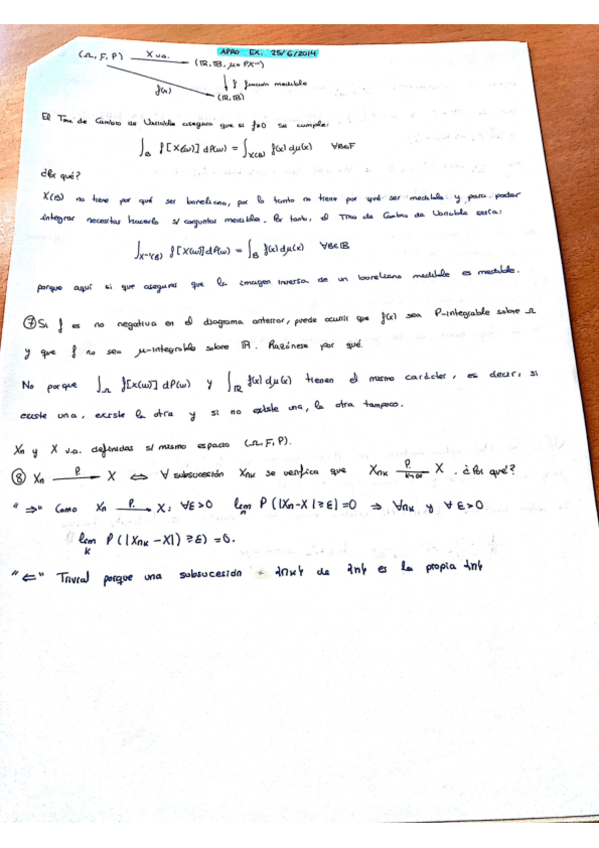 APRO EX. 25/6/2014
(Ω, F, P) X v.a. (ℝ, 𝔹, μ = PX⁻¹)
f(x) ↓ f función medible
(ℝ, 𝔹)
El Tma de Cambio de Variable asegura que si f≥0 se cumple:
∫_B f[X(ω)] dP(ω) = ∫_X(B) f(x) dμ(x) ∀B∈F
¿Por qué?
X(B) no tiene por qué ser boreliano, por lo tanto no tiene por qué ser medible y para poder
integrar necesitas hacerlo s/ conjuntos medibles. Por tanto, el Tma de Cambio de Variable sería:
∫_X⁻¹(B) f[X(ω)] dP(ω) = ∫_B f(x) dμ(x) ∀B∈𝔹
porque aquí si que aseguras que la imagen inversa de un boreliano medible es medible.
⑦ Si f es no negativa en el diagrama anterior, puede ocurrir que f(x) sea P-integrable sobre Ω
y que f no sea μ-integrable sobre ℝ. Razónese por qué.
No porque ∫_Ω f[X(ω)] dP(ω) y ∫_ℝ f(x) dμ(x) tienen el mismo carácter, es decir, si
existe una, existe la otra y si no existe una, la otra tampoco.
Xn y X v.a. definidas s/ mismo espacio (Ω, F, P).
⑧ Xn —P→ X ⇔ ∀ subsucesión Xnk se verifica que Xnk —P, k→∞→ X. ¿Por qué?
"⇒" Como Xn —P→ X: ∀ε>0 lím_n P(|Xn-X|≥ε)=0 ⇒ ∀nk y ∀ε>0
lím_k P(|Xnk-X|)≥ε)=0.
"⇐" Trivial porque una subsucesión = {nk} de {n} es la propia {n}